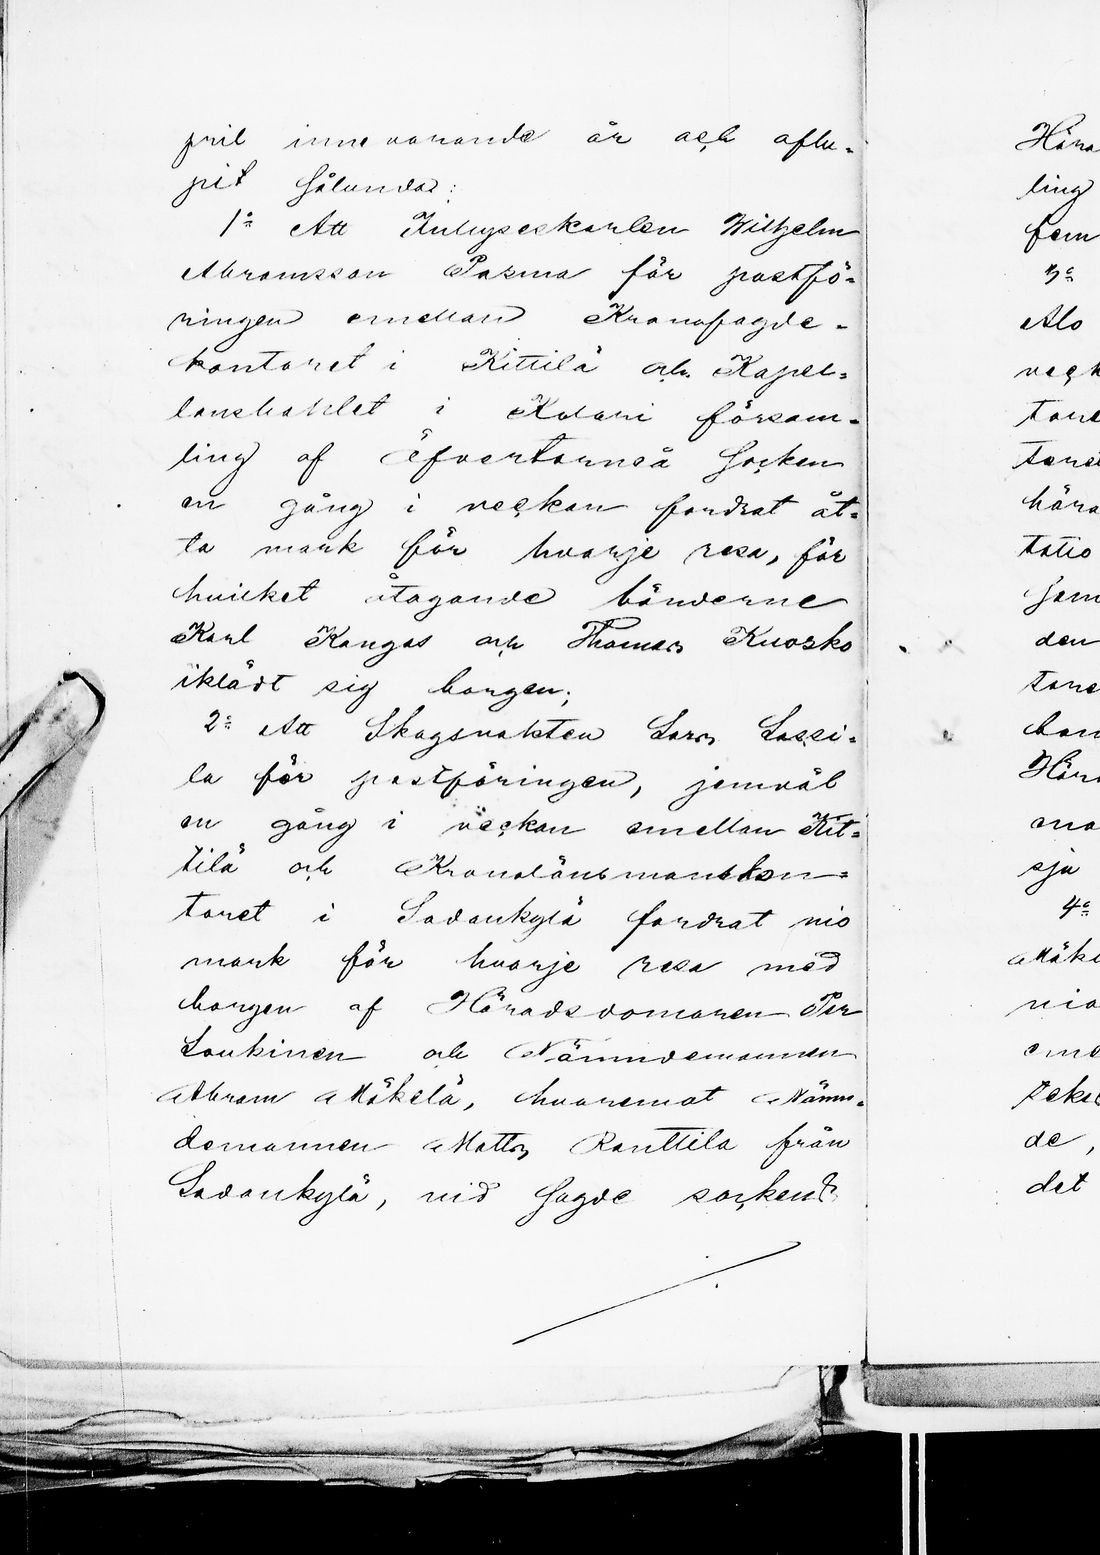 pril innevarande år och aflu-
pit sålunda:
1:o Att Inhyseskarlen Wilhelm
Abramsson Pasma för postfö-
ringen emellan Kronofogde-
kontoret i Kittilä och Kapel-
lansbohlet i Kolari försam-
ling af Öfvertorneå socken
en gång i veckan fordrat åt-
ta mark för hvarje resa, för
hvilket åtagande bönderne
Karl Kangas och Thomas Kuosko
iklädt sig borgen;
2:o Att Skogsvakten Lars Lassi-
la för postföringen, jemväl
en gång i veckan emellan Kit-
tilä och Kronolänsmanskon-
toret i Sodankylä fordrat nio
mark för hvarje resa med
borgen af Häradsdomaren Per
Loukinen och Nämndemannen
Abram Mäkelä, hvaremot Nämn-
demannen Matts Ranttila från
Sodankylä, vid sagde sockens
Hära
ling
fem
3:o
Alo
veck
tore
tore
hära
tatio
sam
den
tore
bon
Hära
ma
sju
4:o
Mäke
nio
eme
Peks
de,
det